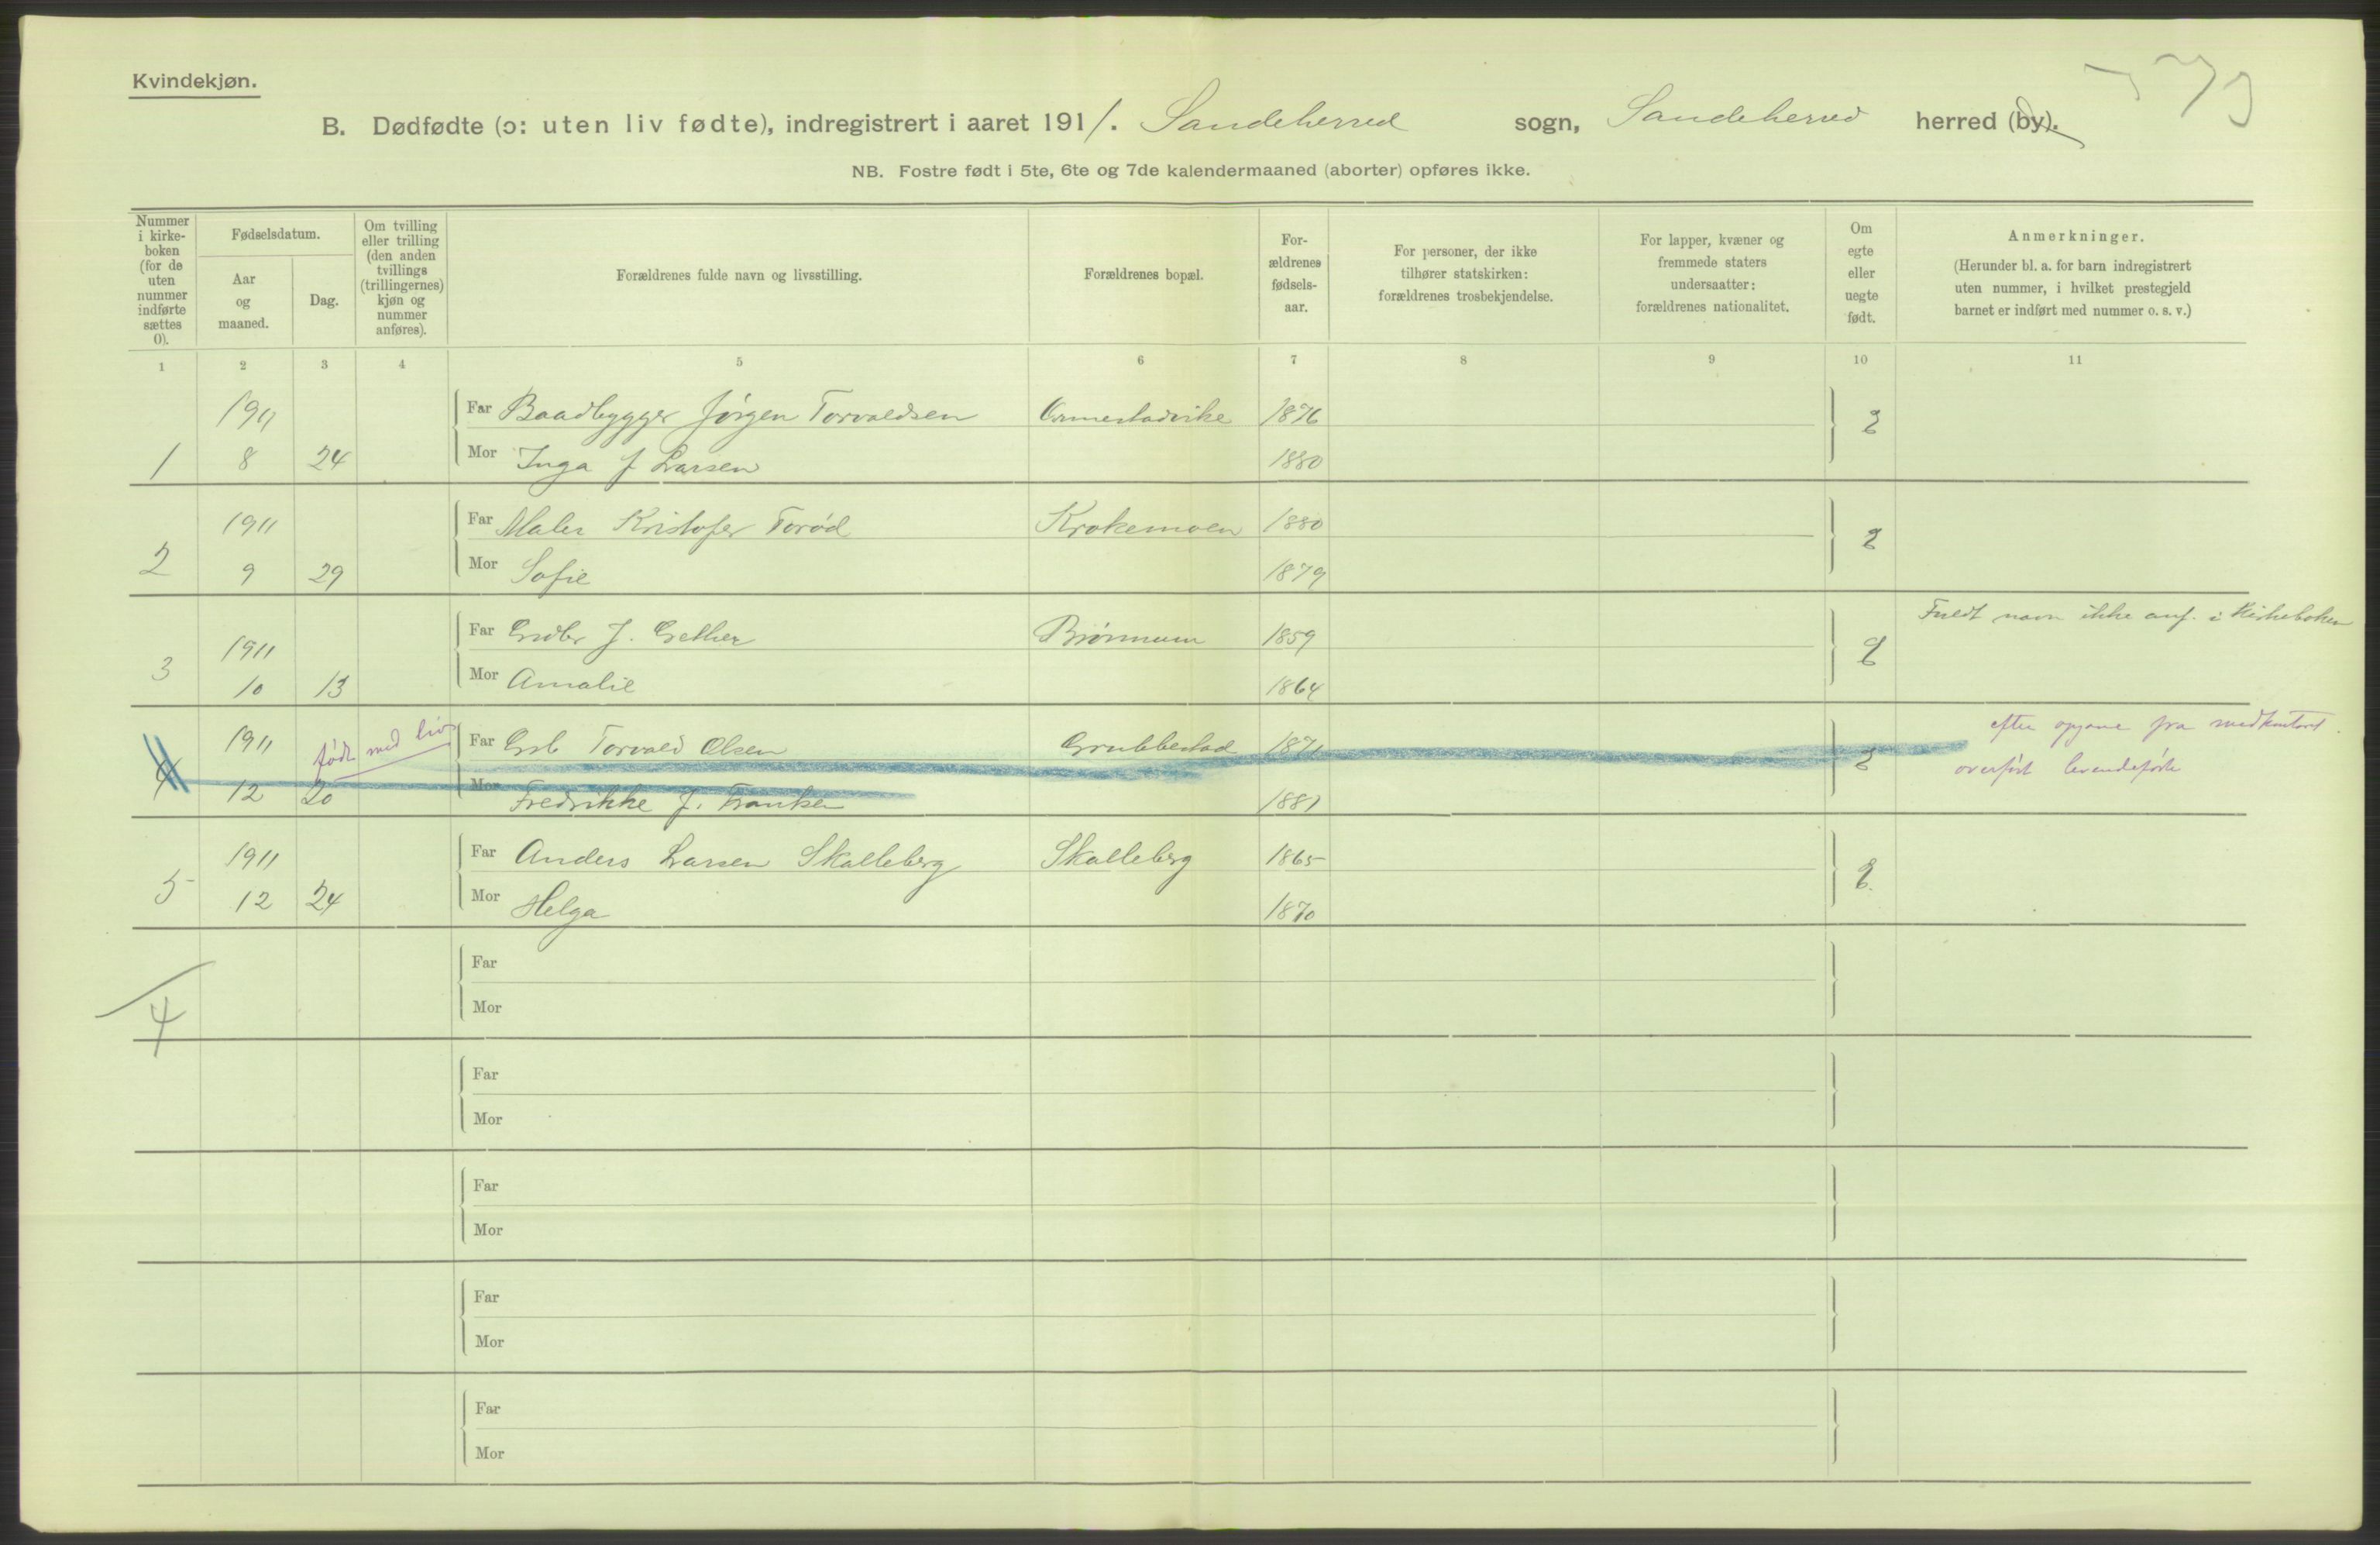 Kvindekjøn.
B. Dødfødte (ɔ: uten liv fødte), indregistrert i aaret 1911. Sandeherred sogn, Sandeherred herred (by).
NB. Fostre født i 5te, 6te og 7de kalendermaaned (aborter) opføres ikke.
Nummer i kirke- boken (for de uten nummer indførte sættes 0).
Fødselsdatum.
Aar og maaned.
Dag.
Om tvilling eller trilling (den anden tvillings (trillingernes) kjøn og nummer anføres).
Forældrenes fulde navn og livsstilling.
Forældrenes bopæl.
For- ældrenes fødsels- aar.
For personer, der ikke tilhører statskirken: forældrenes trosbekjendelse.
For lapper, kvæner og fremmede staters undersaatter: forældrenes nationalitet.
Om egte eller uegte født.
Anmerkninger.
(Herunder bl. a. for barn indregistrert uten nummer, i hvilket prestegjeld barnet er indført med nummer o. s. v.)
1 2 3 4 5 6 7 8 9 10 11
1911 Far Baadbygger Jørgen Torvaldsen Ormestadvike 1876
1 8 24 Mor Inga J Larsen 1880
1911 Far Maler Kristofer Torød Krokemoen 1880
2 9 29 Mor Sofie 1879
Fuldt navn ikke anf. i Kirkeboken
1911 Far Grdbr J. Gether Brønnum 1859
3 10 13 Mor Amalie 1864
født med liv
1911 Far Torvald Olsen Grubbestad 1871
efter opgave fra medkontoret
4 12 20 Mor Fredrikke J. Franksen 1881
overført levendefødte
1911 Far Anders Larsen Skalleberg Skalleberg 1865
5 12 24 Mor Helga 1870
Far
4
Mor
Far
Mor
Far
Mor
Far
Mor
Far
Mor